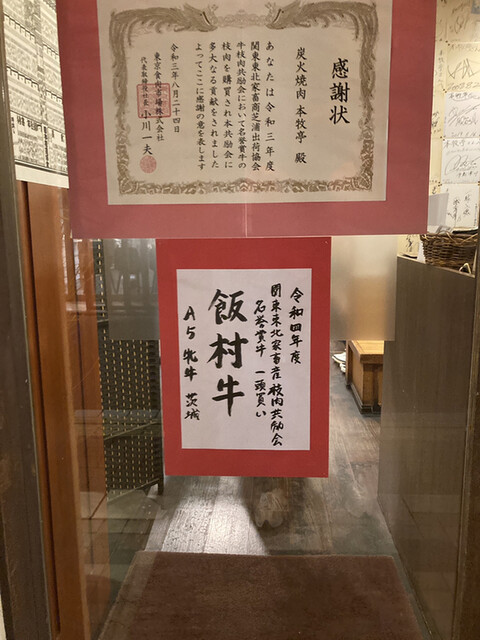 感謝状
炭火焼肉 本牧亭 殿
あなたは令和三年度
関東東北家畜商芝浦出荷協会
牛枝肉共励会において名誉賞牛の
枝肉を購買され本共励会に
多大なる貢献をされました
よってここに感謝の意を表します
令和三年八月二十四日
東京食肉市場株式会社
代表取締役社長 小川一夫
令和四年度
関東東北家畜産枝肉共励会
名誉賞牛 一頭買い
飯村牛
A5 牝牛 茨城